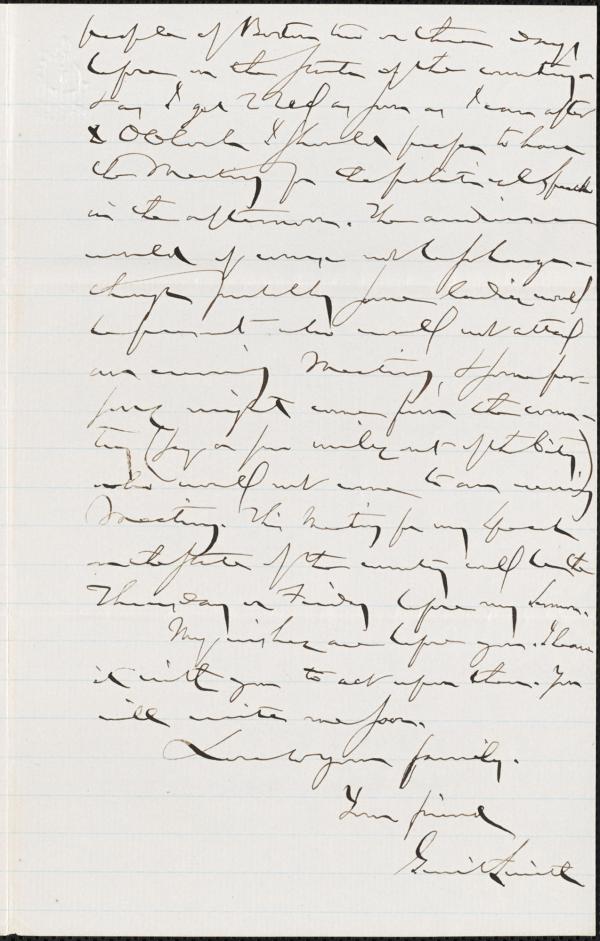 people of Boston two or three days
before, on the State of the country.
day I get
O'Clock I should prefer to have
the Meeting for the political Speech
in the afternoon. The audience
would of course not be so large –
though probably some ladies would
be present who would not attend
an evening Meeting, & some per-
sons might come from the coun-
try (say a few miles out of the City)
who would not come to an evening
Meeting. This Meeting for my Speech
on the State of the country will be the
Thursday or Friday before my Sermon.
My wishes are before you. I leave
it with you to act upon them. You
will write me soon.
Love to your family.
Your friend
Gerrit Smith